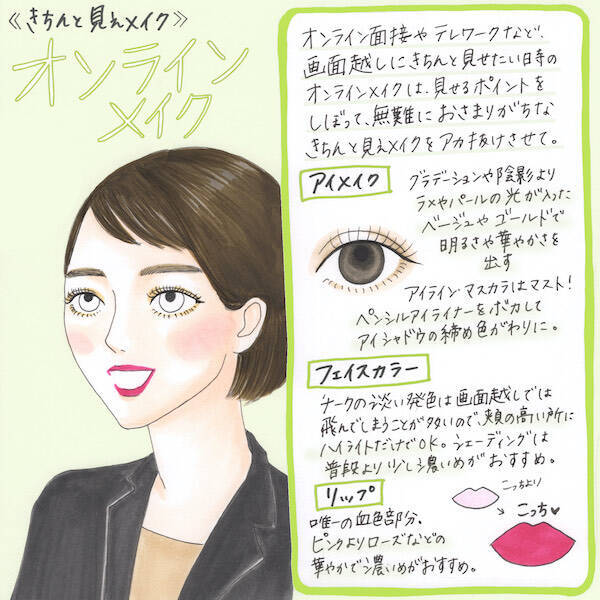 《きちんと見えメイク》
オンライン
メイク
オンライン面接や テレワークなど、
画面越しにきちんと見せたい日時の
オンラインメイクは、見せるポイントを
しぼって、無難に おさまりがちな
きちんと見えメイクをアカ抜けさせて。
アイメイク
グラデーションや陰影より
ラメやパールの光が入った
ベージュや ゴールドで
明るさや華やかさを
出す
アイライン・マスカラはマスト!
ペンシルアイライナーをボカして
アイシャドウの締め色がわりに。
フェイスカラー
チークの淡い発色は画面越しでは
飛んでしまうことが多いので、頬の高い所に
ハイライトだけでOK。シェーディングは
普段より少し濃いめがおすすめ。
リップ
唯一の血色部分、
ピンクよりローズなどの
華やかで濃いめがおすすめ。
こっちより
→ こっち♥